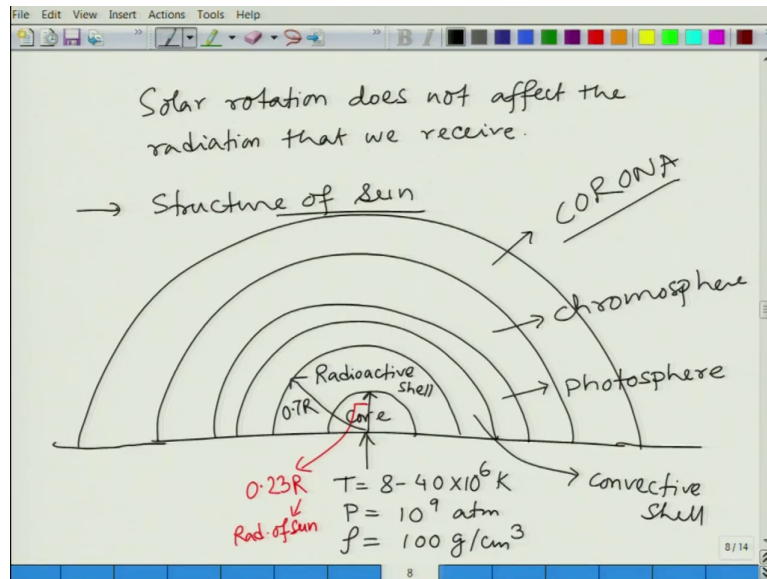 File Edit View Insert Actions Tools Help
B I
Solar rotation does not affect the
radiation that we receive.
→ Structure of sun
CORONA
chromosphere
photosphere
Radioactive
shell
0.7R
Core
0.23R
Rad. of sun
T = 8 - 40 x 10⁶ K
P = 10⁹ atm
ρ = 100 g/cm³
convective
shell
8/14
8